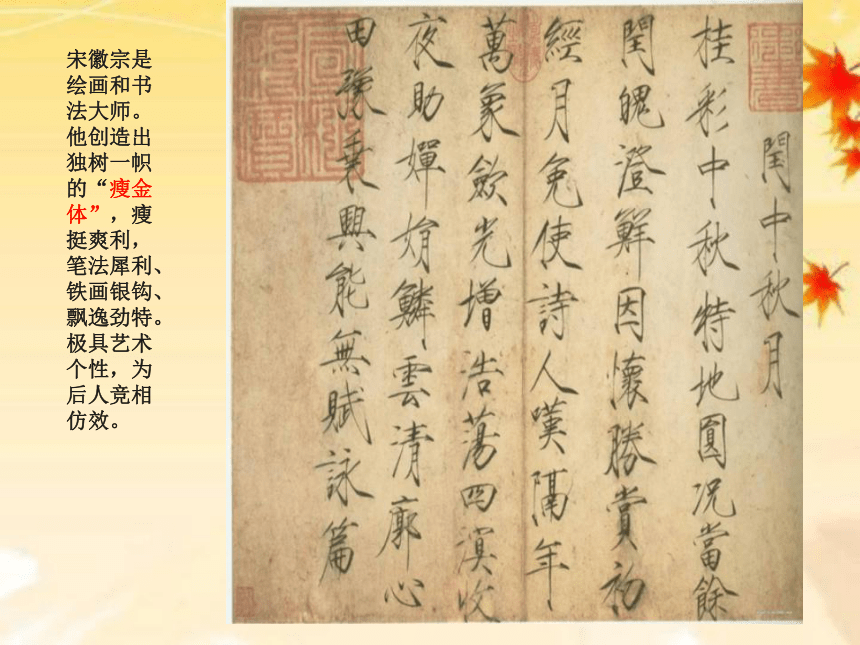 宋徽宗是
绘画和书
法大师。
他创造出
独树一帜
的“瘦金
体”，瘦
挺爽利，
笔法犀利、
铁画银钩、
飘逸劲特。
极具艺术
个性，为
后人竞相
仿效。
閏中秋月
桂彩中秋特地圓况當餘
閏魄澄鮮因懷勝賞初
經月免使詩人嘆隔年
萬象歛光增浩蕩四溟收
夜助嬋娟鱗雲清廓心
田豫乘興能無賦詠篇